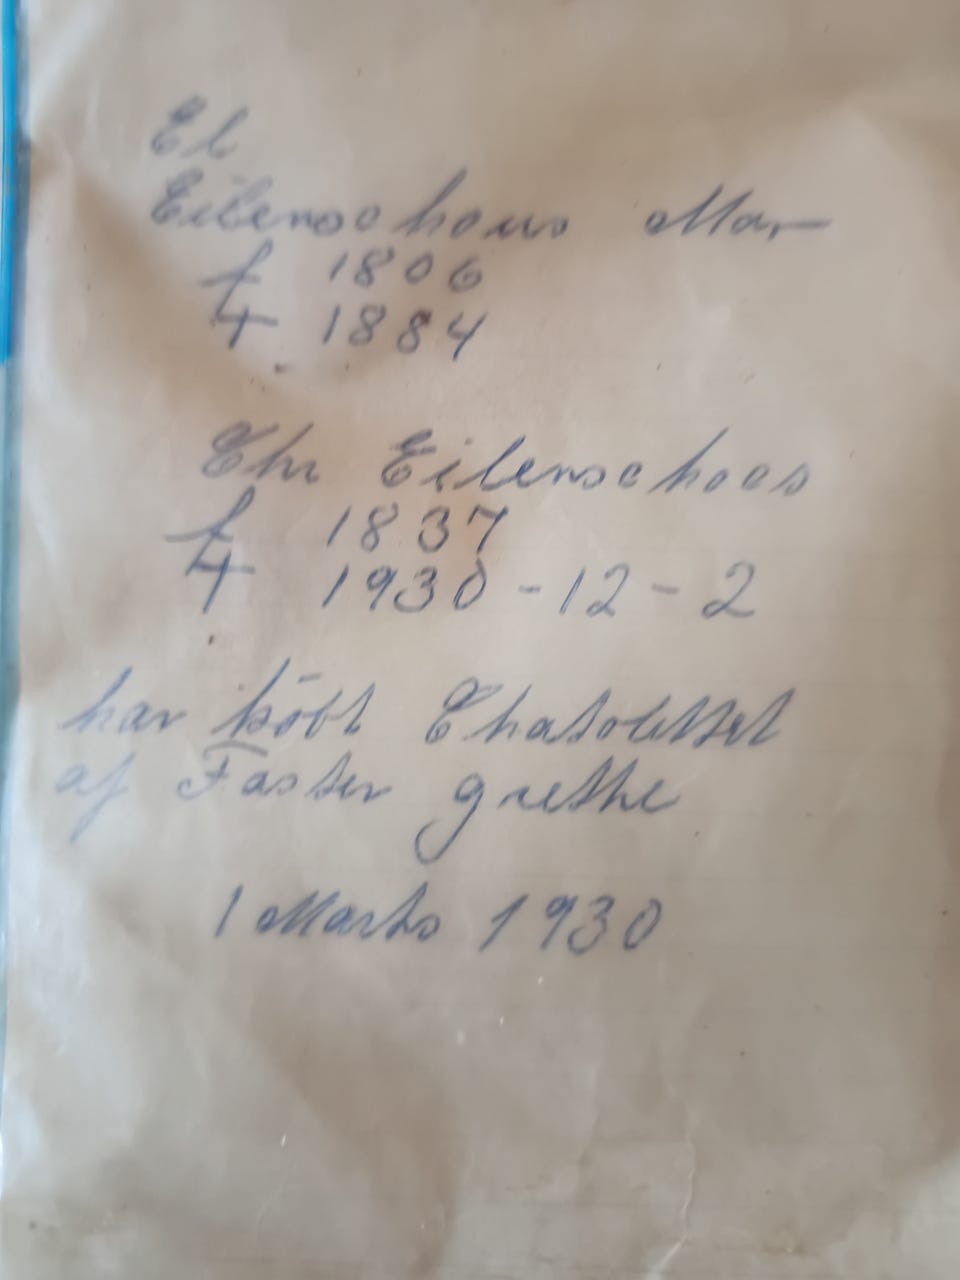 El
Eilerschous Mar
f 1806
† 1884
Chr Eilerschoes
f 1837
† 1930-12-2
har köbt Chatolettet
af Faster grethe
1 Marts 1930